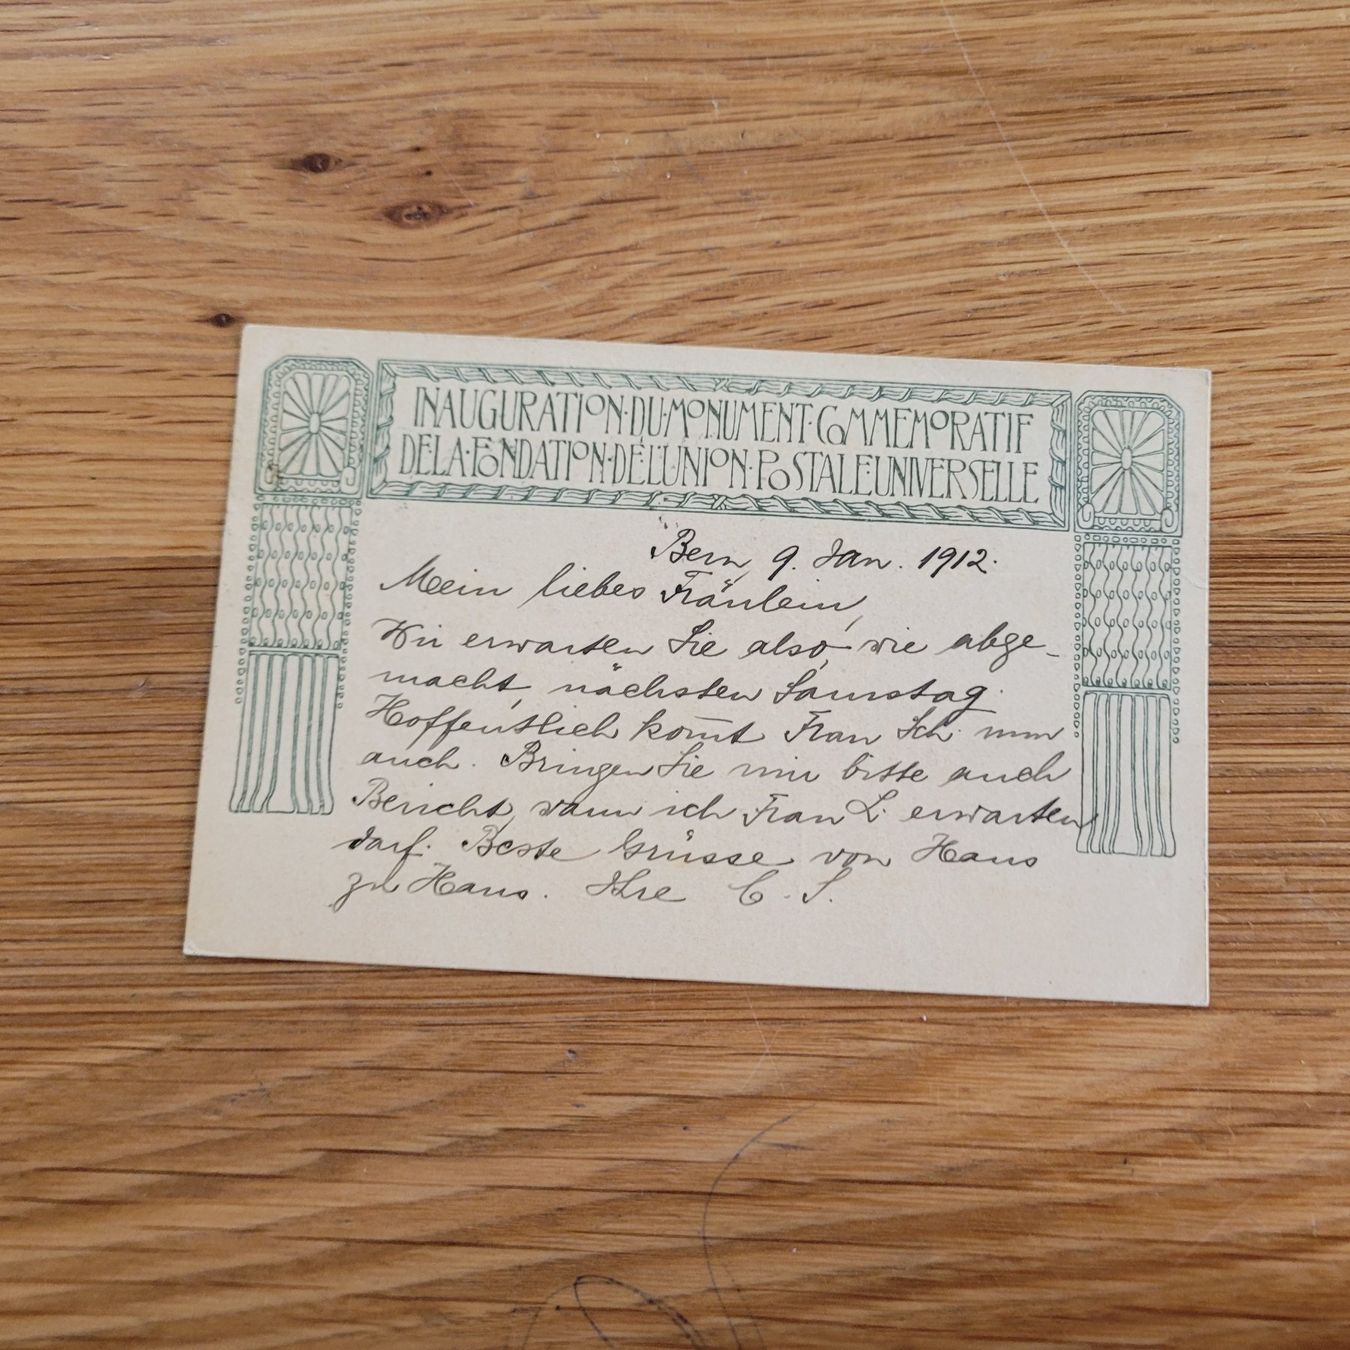 INAUGURATION·DU·MONUMENT·COMMEMORATIF
DE·LA·FONDATION·DE·L'UNION·POSTALE·UNIVERSELLE
Bern, 9. Jan. 1912.
Mein liebes Fräulein,
Wir erwarten Sie also, wie abge-
macht, nächsten Samstag.
Hoffentlich kom̅t Frau Sch. nun
auch. Bringen Sie mir bitte auch
Bericht, wann ich Frau L. erwarten
darf. Beste Grüsse von Haus
zu Haus. Ihre C. S.